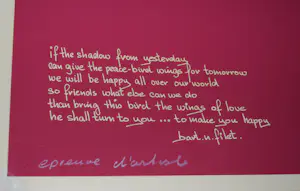 if the shadow from yesterday
can give the peace-bird wings for tomorrow
we will be happy all over our world
so friends what else can we do
than bring this bird the wings of love
he shall turn to you ... to make you happy
bart. n. filet.
epreuve d'artiste